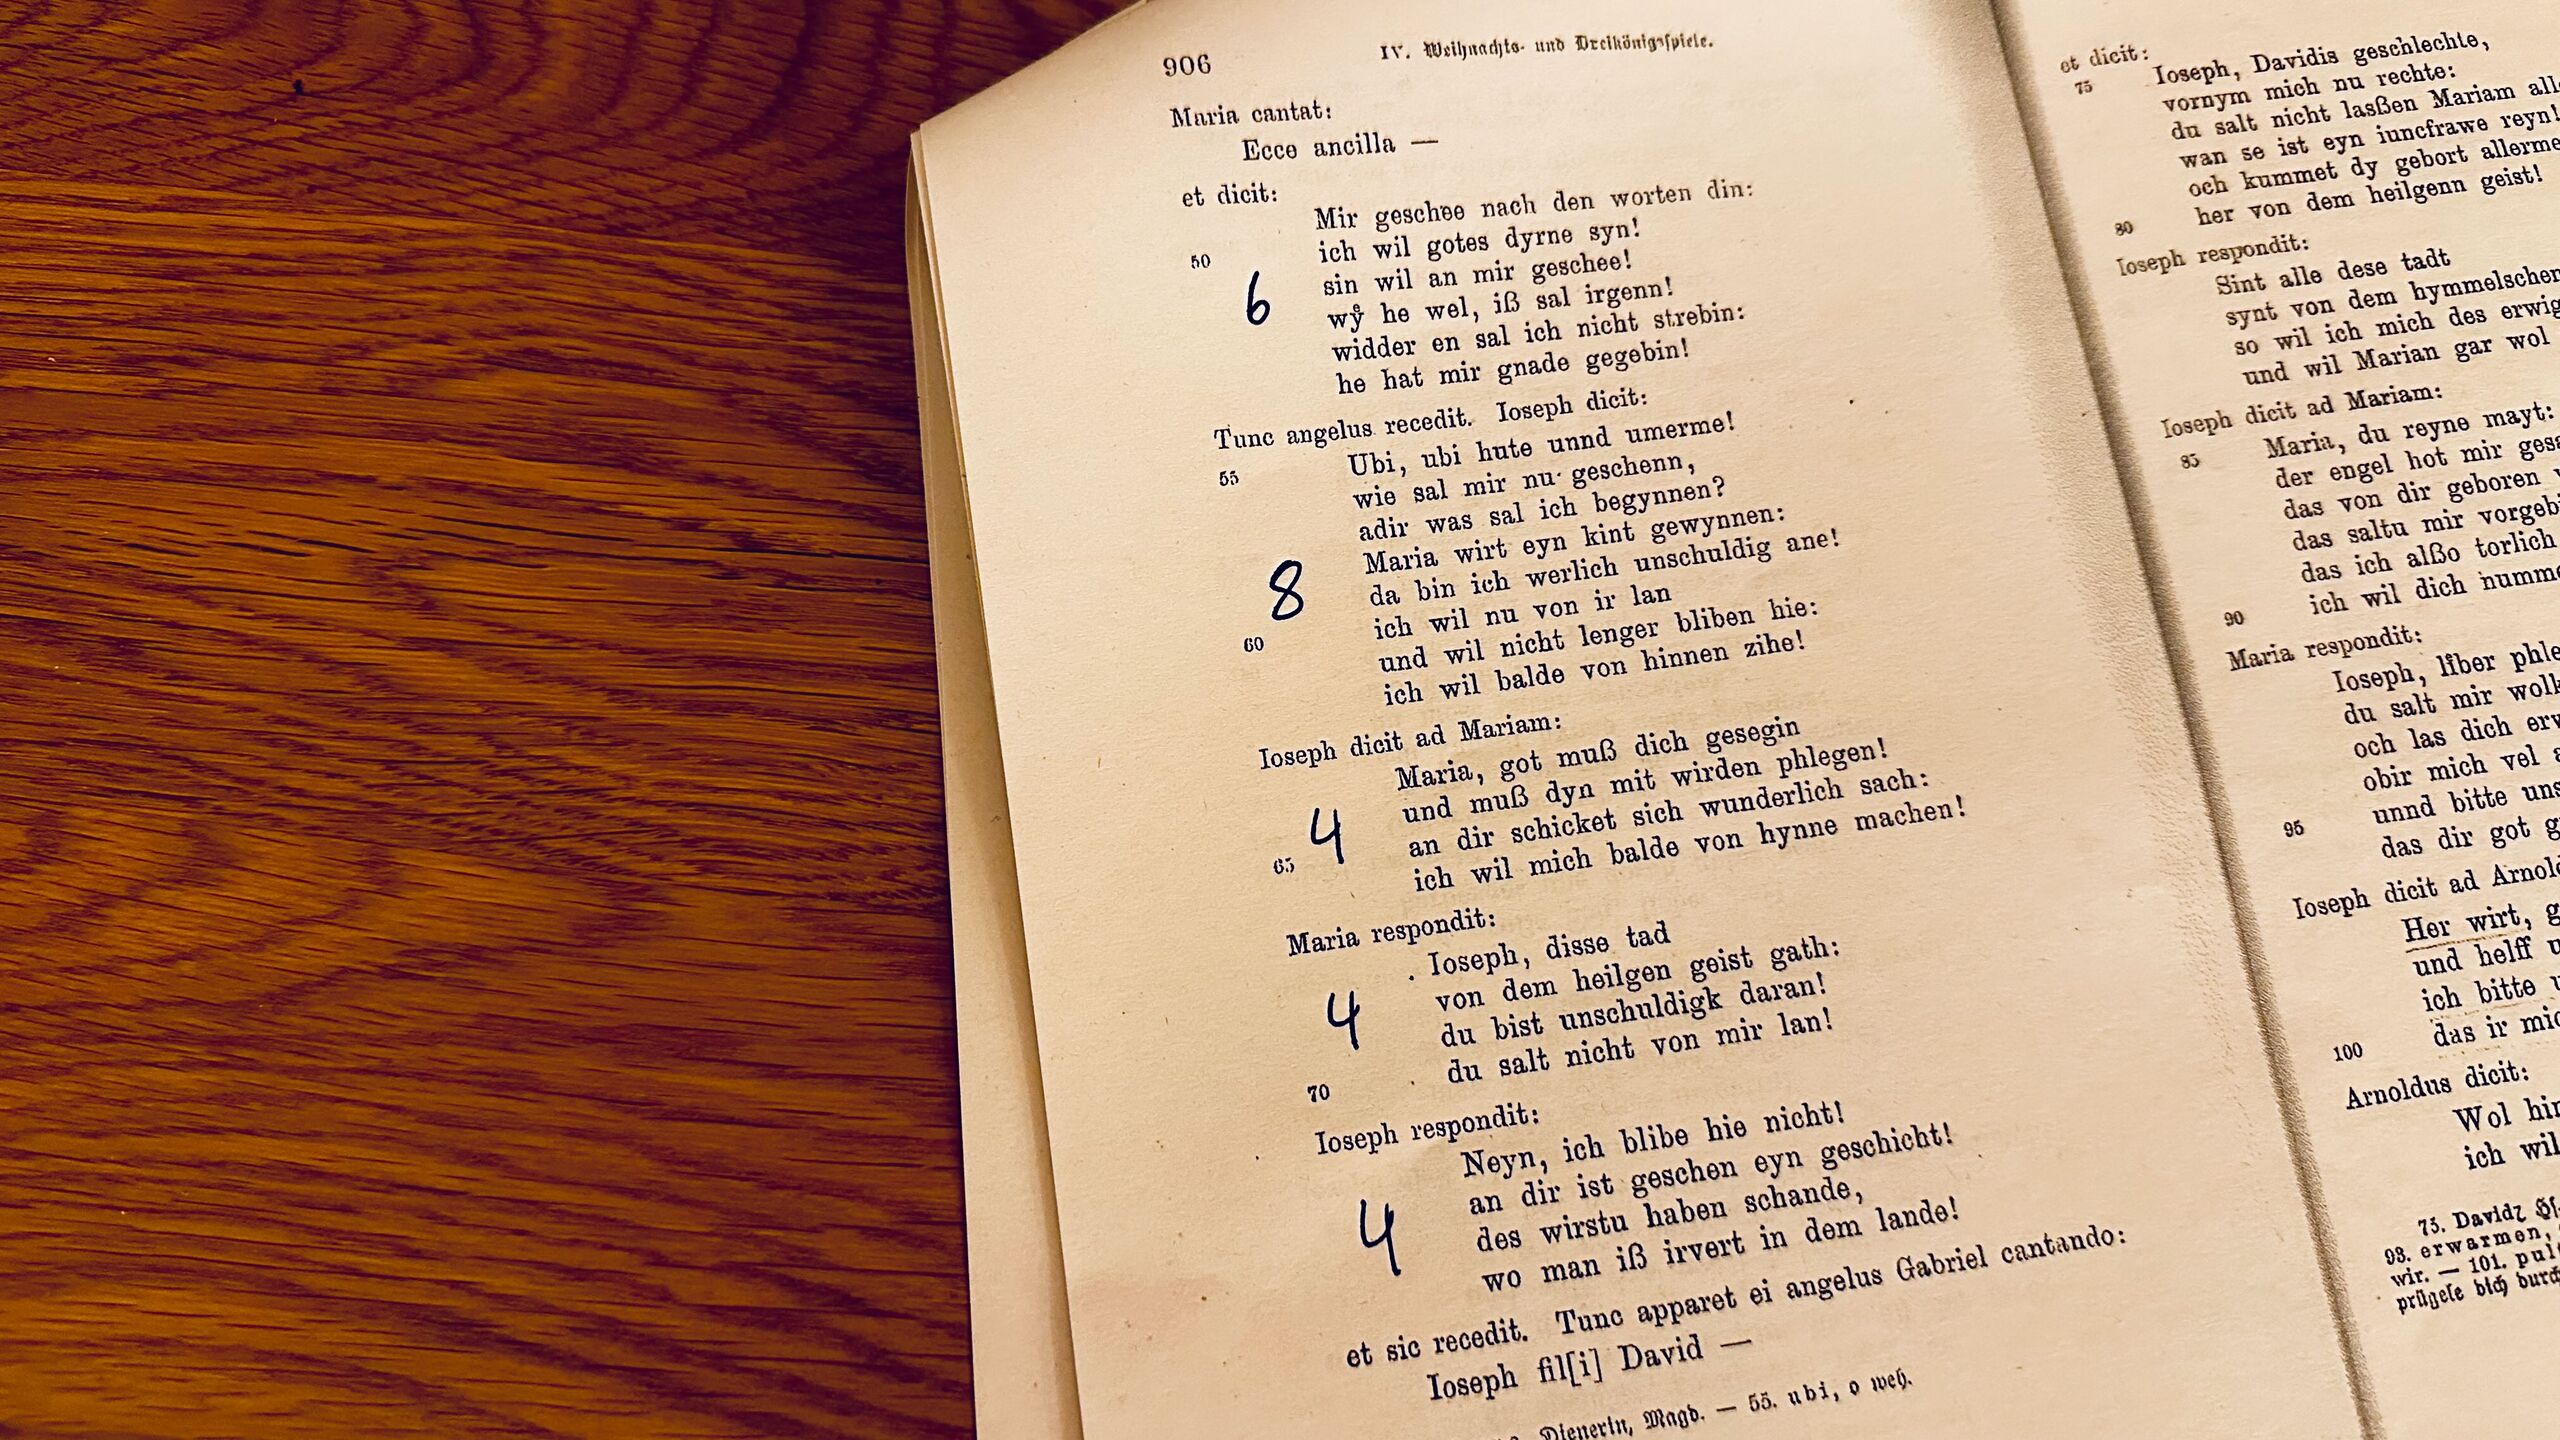 906
IV. Weihnachts- und Dreikönigsspiele.
Maria cantat:
Ecce ancilla —
et dicit:
Mir geschee nach den worten din:
50 ich wil gotes dyrne syn!
sin wil an mir geschee!
6
wẙ he wel, iß sal irgenn!
widder en sal ich nicht strebin:
he hat mir gnade gegebin!
Tunc angelus recedit. Ioseph dicit:
55 Ubi, ubi hute unnd umerme!
wie sal mir nu geschenn,
adir was sal ich begynnen?
Maria wirt eyn kint gewynnen:
8
da bin ich werlich unschuldig ane!
60 ich wil nu von ir lan
und wil nicht lenger bliben hie:
ich wil balde von hinnen zihe!
Ioseph dicit ad Mariam:
Maria, got muß dich gesegin
und muß dyn mit wirden phlegen!
4
65 an dir schicket sich wunderlich sach:
ich wil mich balde von hynne machen!
Maria respondit:
Ioseph, disse tad
von dem heilgen geist gath:
4
du bist unschuldigk daran!
70 du salt nicht von mir lan!
Ioseph respondit:
Neyn, ich blibe hie nicht!
an dir ist geschen eyn geschicht!
4
des wirstu haben schande,
wo man iß irvert in dem lande!
et sic recedit. Tunc apparet ei angelus Gabriel cantando:
Ioseph fil[i] David —
Dienerin, Magd. — 55. ubi, o weh.
et dicit:
75 Ioseph, Davidis geschlechte,
vornym mich nu rechte:
du salt nicht laßen Mariam
wan se ist eyn iuncfrawe reyn!
och kummet dy gebort
80 her von dem heilgenn geist!
Ioseph respondit:
Sint alle dese tadt
synt von dem hymmelschen
so wil ich mich des
und wil Marian gar wol
Ioseph dicit ad Mariam:
85 Maria, du reyne mayt:
der engel hot mir
das von dir geboren
das saltu mir
das ich alßo torlich
90 ich wil dich
Maria respondit:
Ioseph, liber
du salt mir
och las dich
obir mich vel
95 unnd bitte
das dir got
Ioseph dicit ad
Her wirt,
und helff
ich bitte
100 das ir
Arnoldus dicit:
Wol
ich
75. Davidz
93. erwarmen,
wir. — 101.
prügele dich